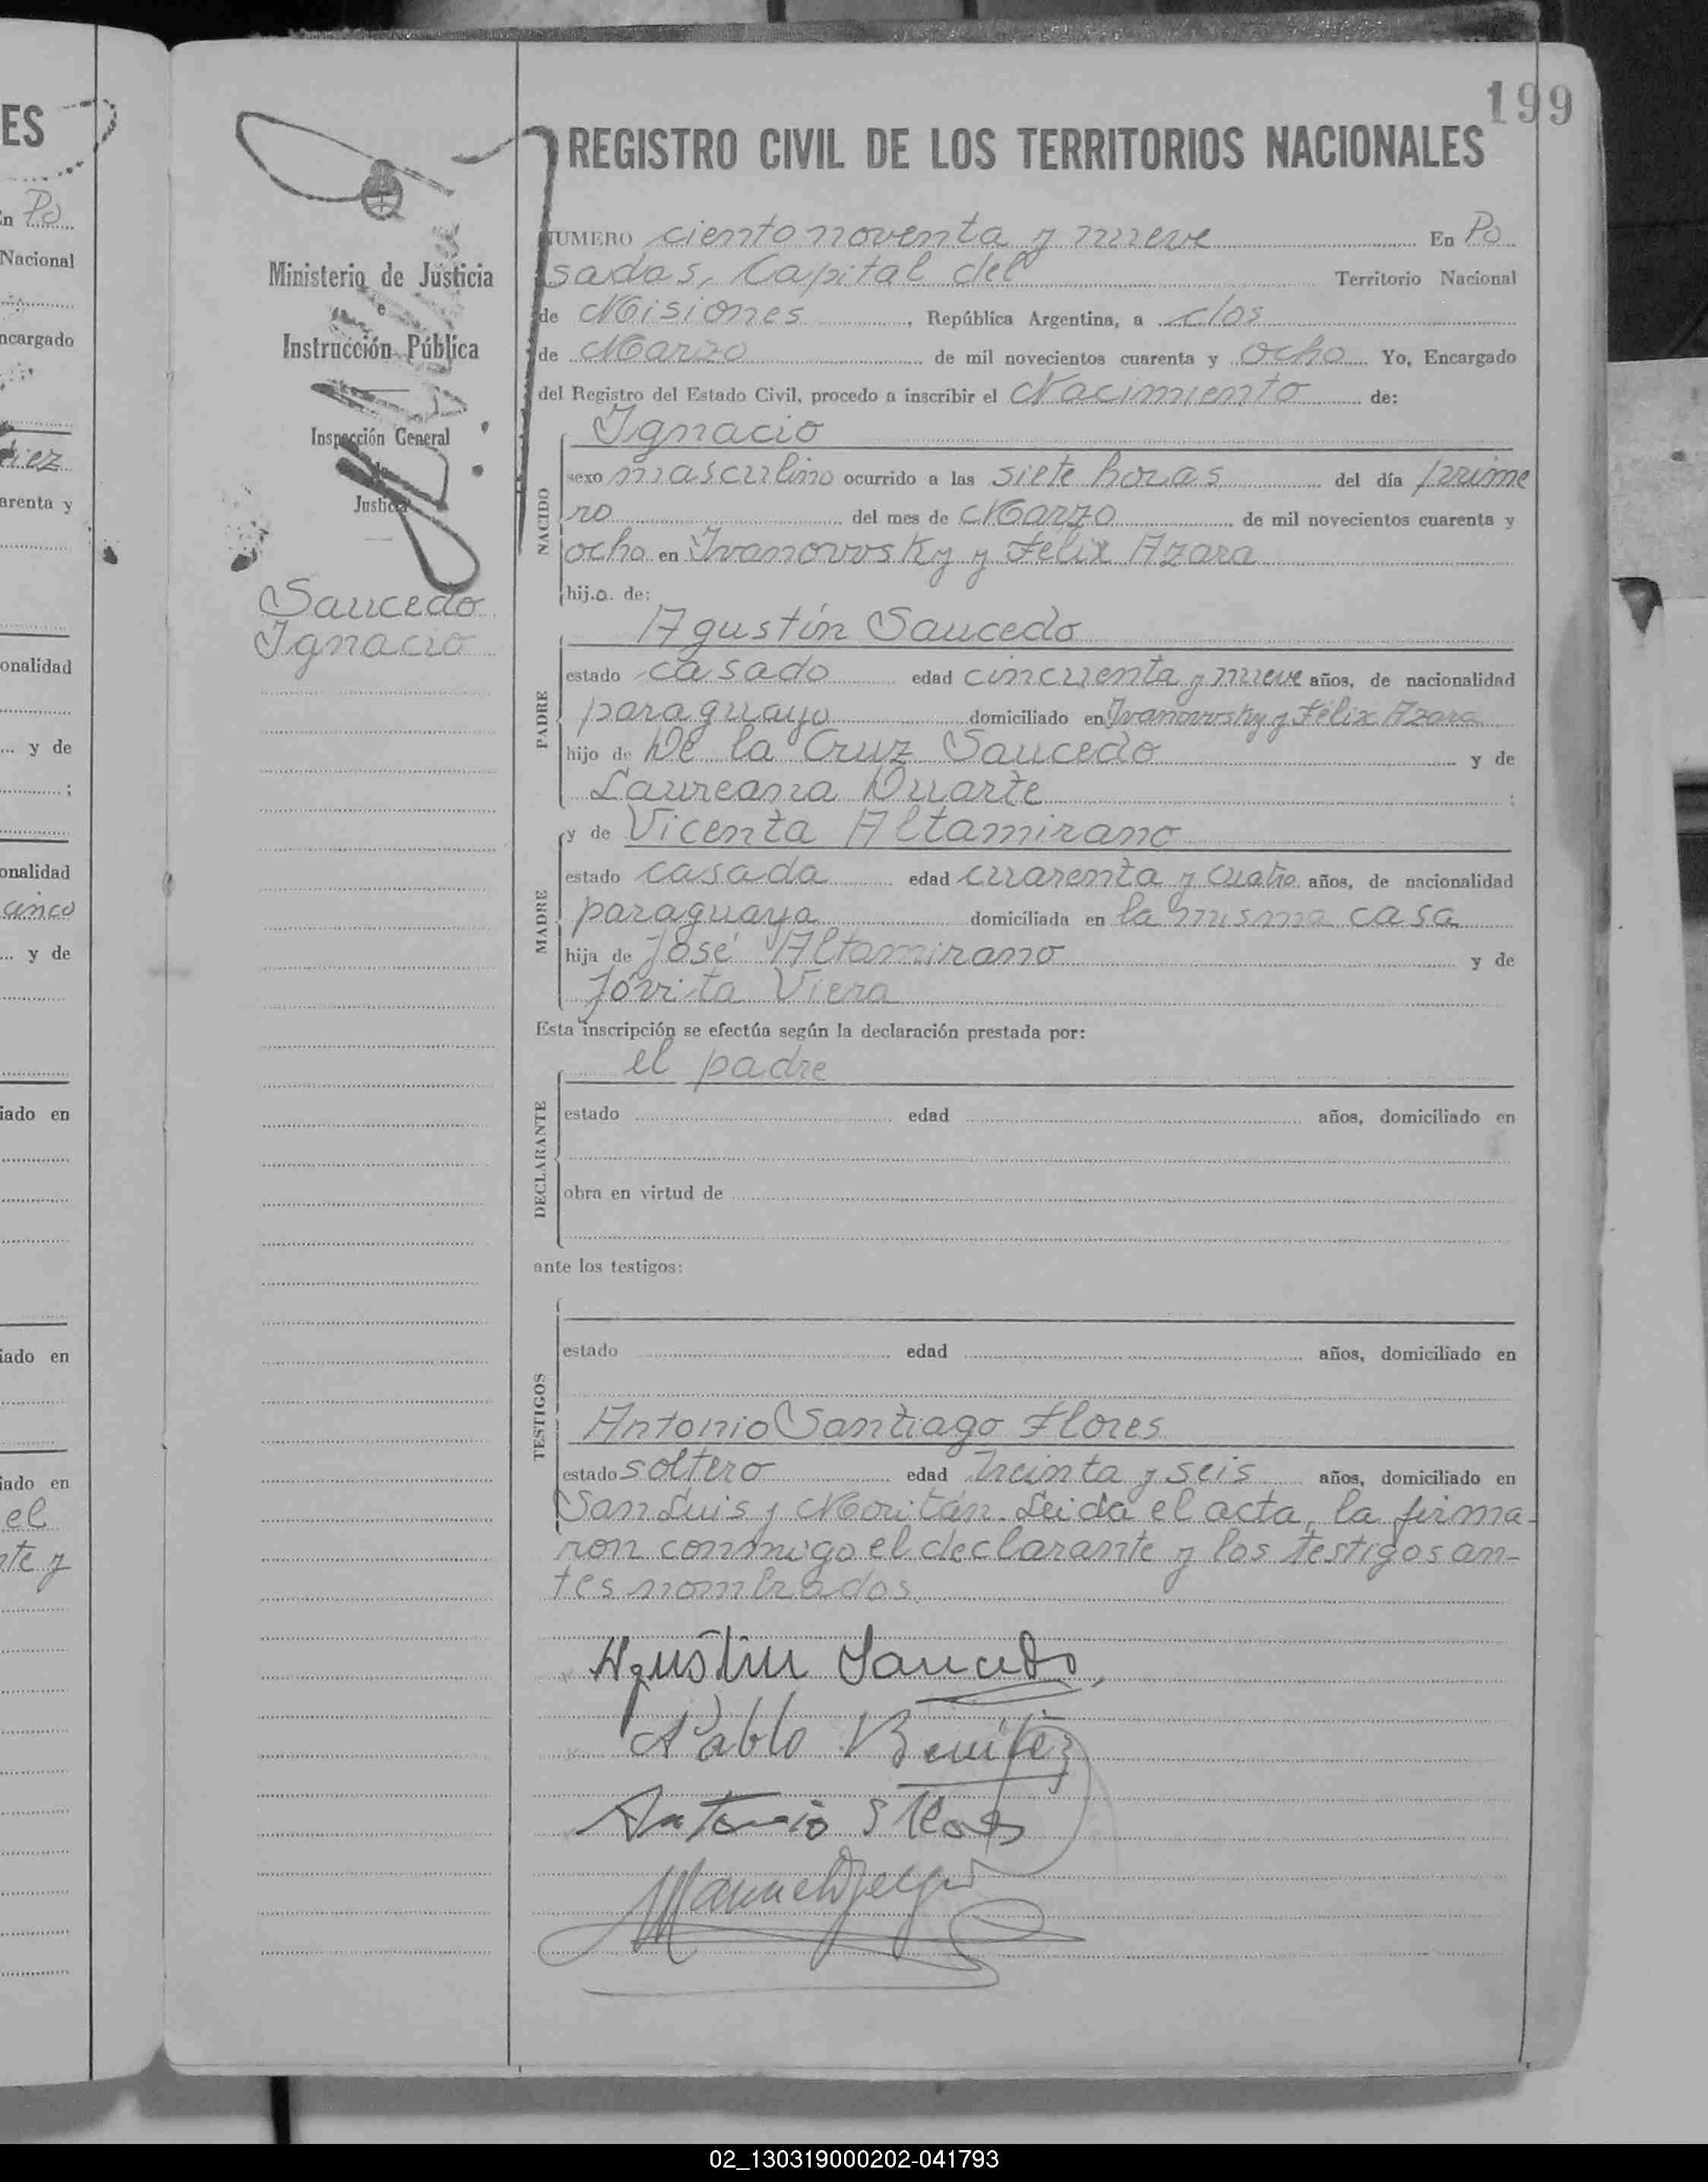 ES
En Po
Nacional
ncargado
diez
arenta y
onalidad
... y de
;
onalidad
cinco
... y de
iado en
iado en
iado en
el
nte y
199
REGISTRO CIVIL DE LOS TERRITORIOS NACIONALES
Ministerio de Justicia
e
Instrucción Pública
Inspección General
de
Justicia
Saucedo
Ignacio
NUMERO ciento noventa y nueve En Po
sadas, Capital del Territorio Nacional
de Misiones, República Argentina, a dos
de Marzo de mil novecientos cuarenta y ocho Yo, Encargado
del Registro del Estado Civil, procedo a inscribir el Nacimiento de:
NACIDO
Ignacio
sexo masculino ocurrido a las siete horas del día prime
ro del mes de Marzo de mil novecientos cuarenta y
ocho en Ivanovvsky y Félix Azara
hij.o. de:
PADRE
Agustín Saucedo
estado casado edad cincuenta y nueve años, de nacionalidad
paraguayo domiciliado en Ivanovvsky y Félix Azara
hijo de De la Cruz Saucedo y de
Laureana Duarte ;
MADRE
y de Vicenta Altamirano
estado casada edad cuarenta y cuatro años, de nacionalidad
paraguaya domiciliada en la misma casa
hija de José Altamirano y de
Jovita Viera
Esta inscripción se efectúa según la declaración prestada por:
DECLARANTE
el padre
estado edad años, domiciliado en
obra en virtud de
ante los testigos:
TESTIGOS
estado edad años, domiciliado en
Antonio Santiago Flores
estado soltero edad treinta y seis años, domiciliado en
San Luis y Moritán. Leida el acta, la firma-
ron conmigo el declarante y los testigos an-
tes nombrados.
Agustin Saucedo,
Pablo Benitez
Antonio S Flores
Manuel
02_130319000202-041793